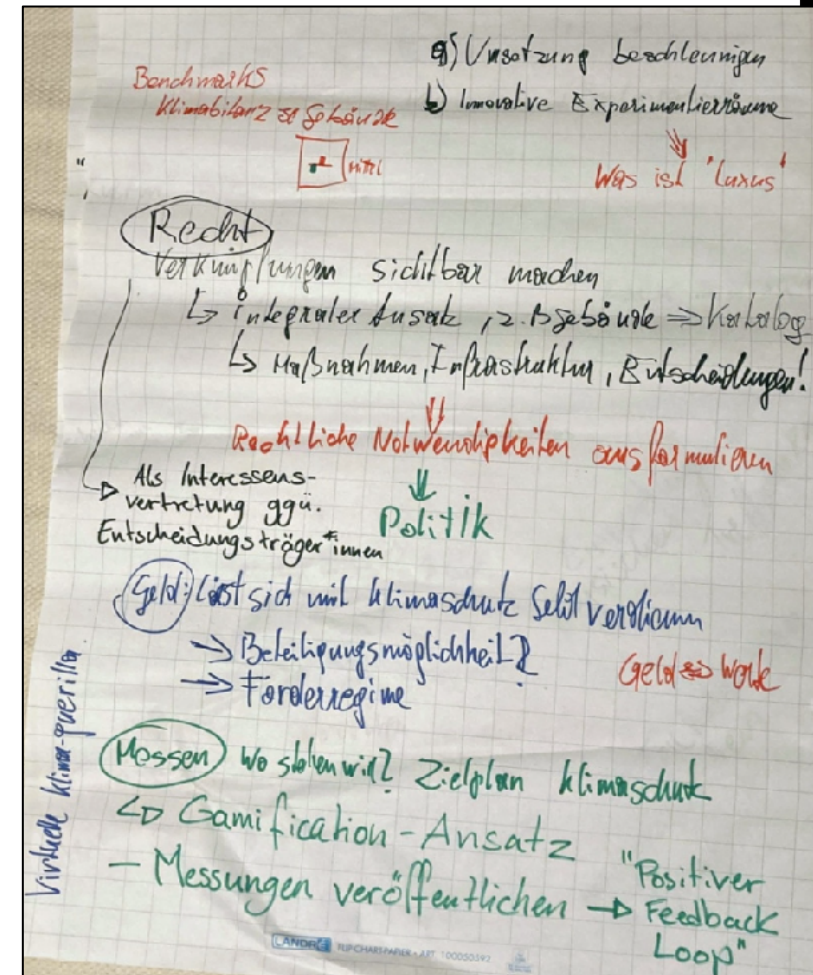 a) Umsetzung beschleunigen
b) Innovative Experimentierräume
Was ist 'Luxus'
Benchmarks
Klimabilanz Gebäude
Recht
Verknüpfungen sichtbar machen
↳ integraler Ansatz, z.B Gebäude ⇒ Katalog
↳ Maßnahmen, Infrastruktur, Entscheidungen!
⇓
Rechtliche Notwendigkeiten ausformulieren
⇓
Politik
Als Interessens-
vertretung ggü.
Entscheidungsträger*innen
Geld: lässt sich mit Klimaschutz Geld verdienen
→ Beteiligungsmöglichkeit?
→ Förderregime
Geld ⇔ Werte
Messen Wo stehen wir? Zielplan Klimaschutz
↳ Gamification-Ansatz
– Messungen veröffentlichen → "Positiver
Feedback
Loop"
Virtuelle Klima-guerilla
LANDRÉ FLIPCHARTPAPIER • ART. 100050592